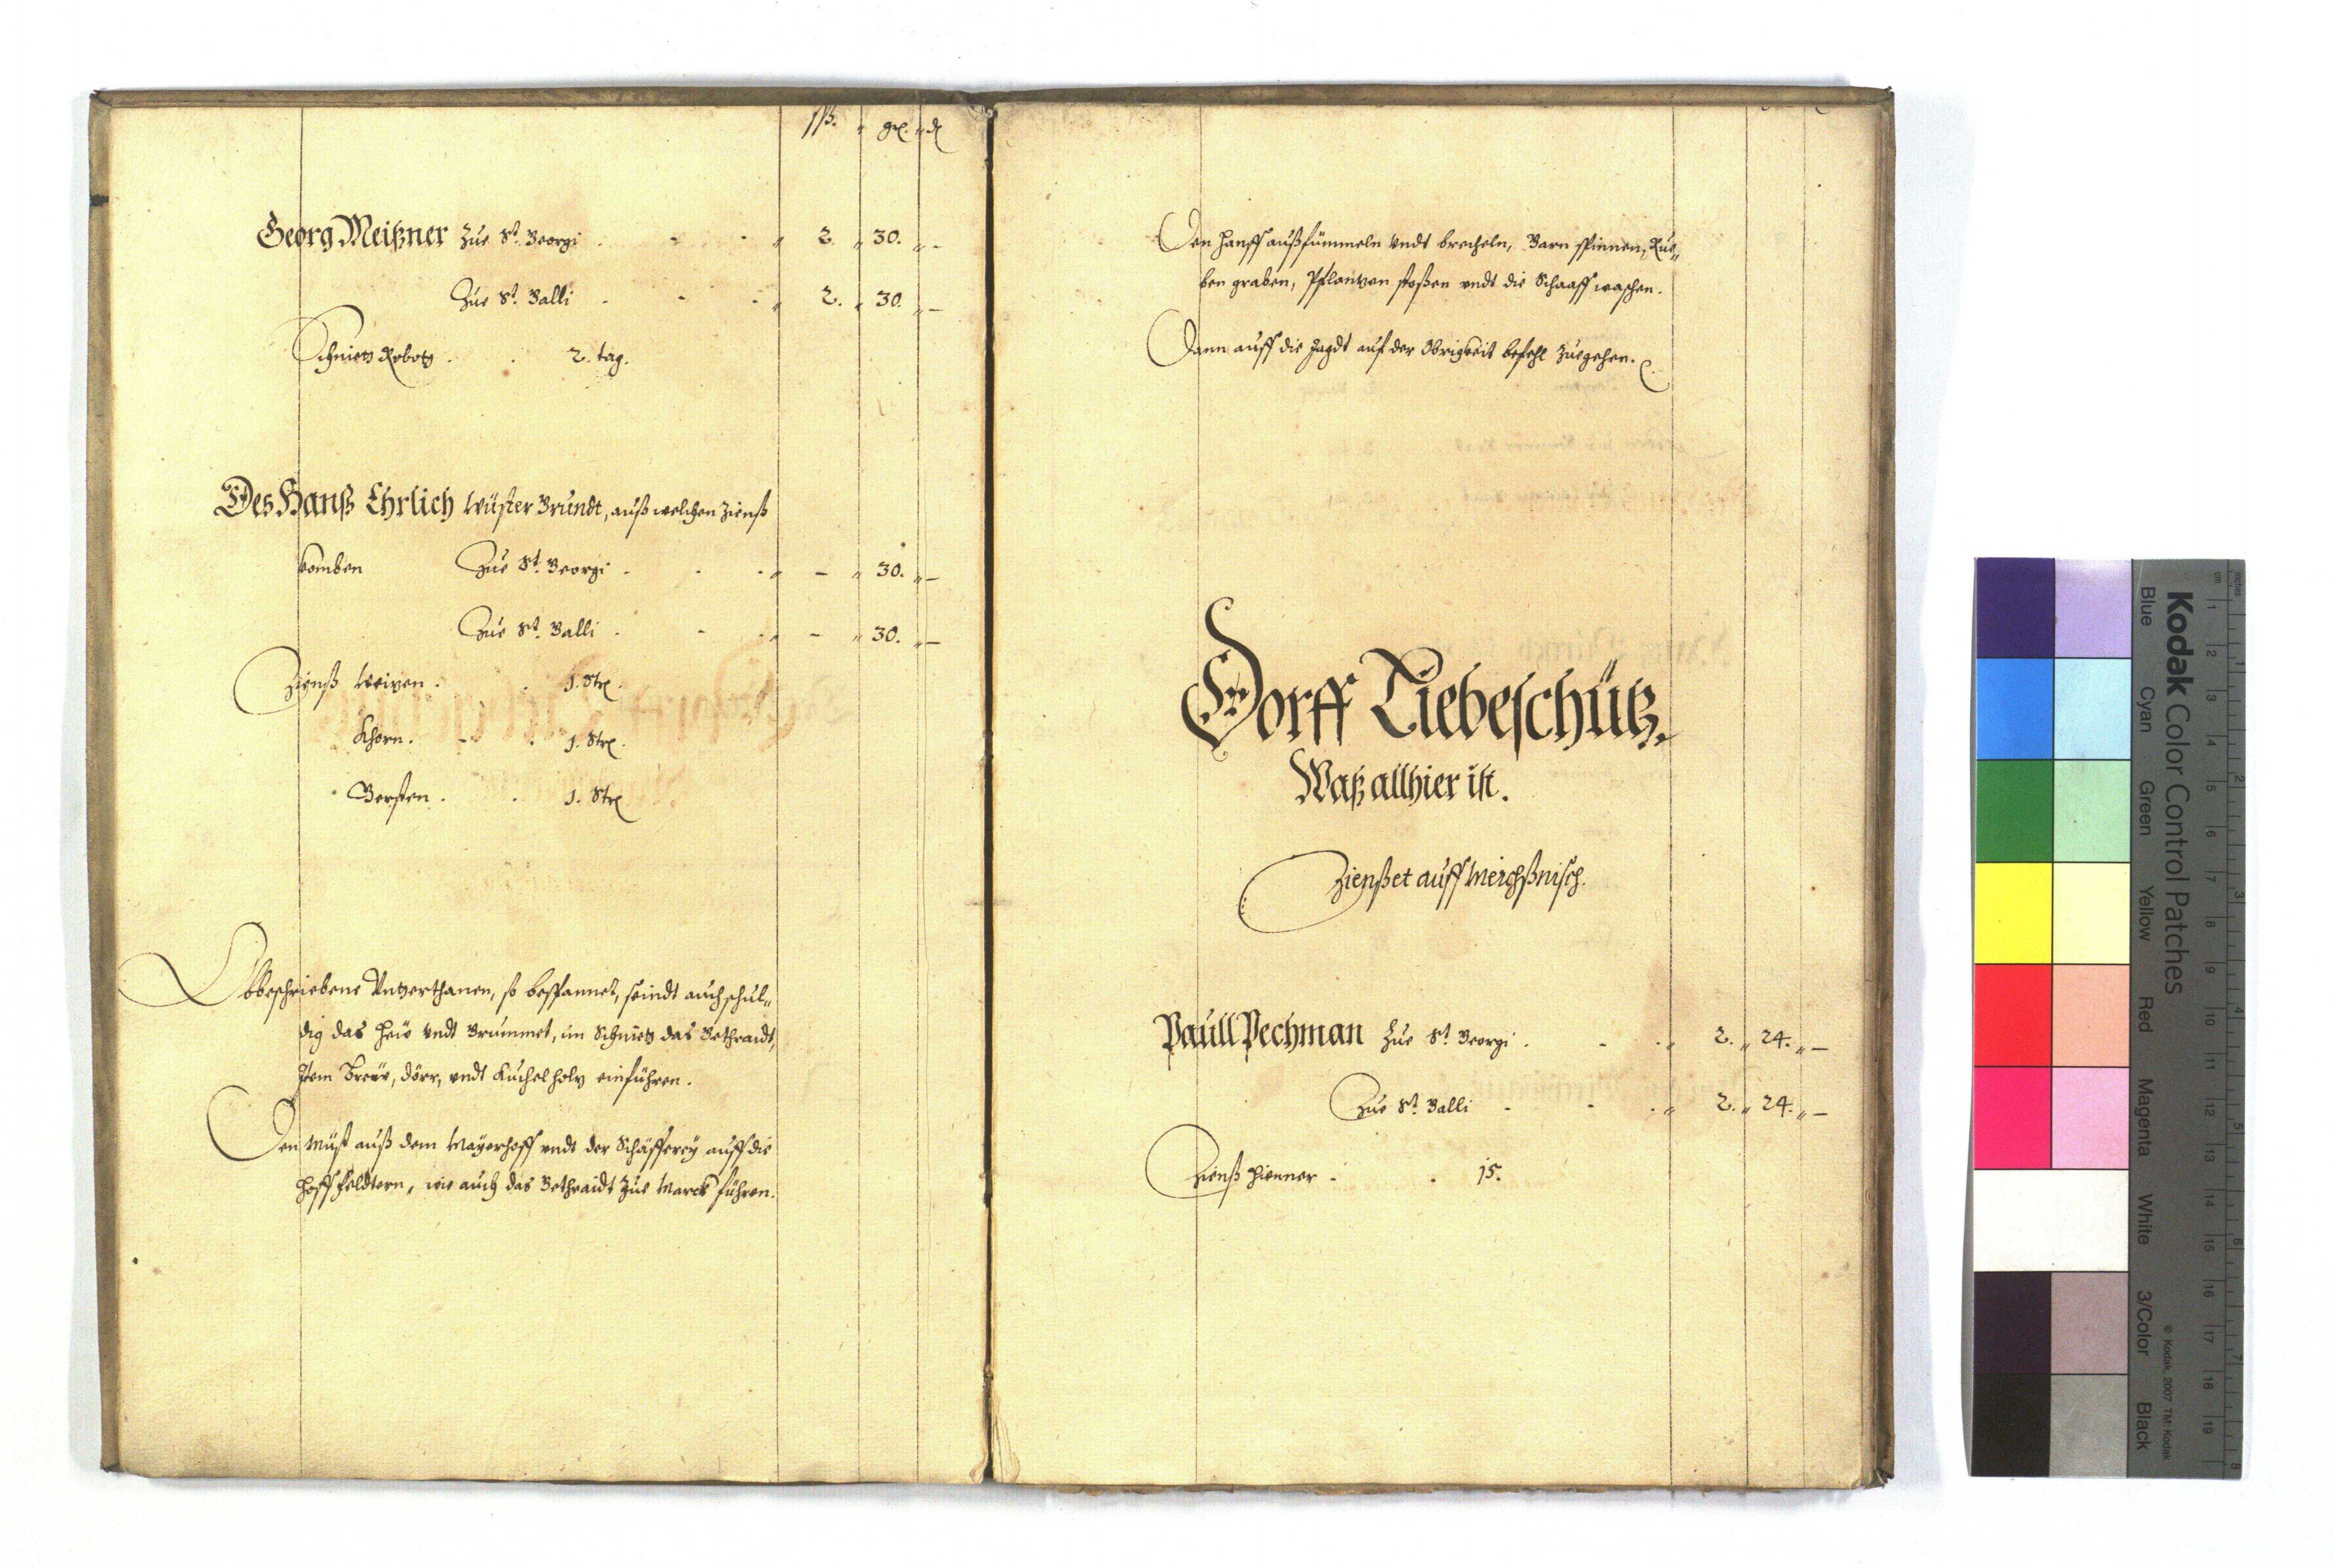 ßß. gl. d
Georg Meißner Zue St. Georgi . - - 2. 30. -
Zue St. Galli . - - 2. 30. -
Schnietz Robotz . . 2. tag.
Des Hanß Ehrlich wüster Grundt, auß welchen Zienß
komben Zue St. Georgi . . . - 30. -
Zue St. Galli . - . - 30. -
Zienß Weitzen . . 1. Str.
Khorn . - . 1. Str.
Gersten . . 1. Str.
Obbeschriebene Untherthanen, so bespannet, seindt auch schul„
dig das Heü vndt Grummet, im Schnietz das Gethraidt,
Item Breüe, dörr, vndt Kuchelholtz einführen.
Den Müst auß dem Mayerhoff vndt der Schäfferey auff die
Hoff feldtern, wie auch das Gethraidt Zue Marck führen.
Den Hanff außfümmeln vndt brecheln, Garn spinnen, Rue„
ben graben, Pflantzen stoßen vndt die Schaaff waschen.
Dann auff die Jagdt auf der Obrigkeit befehl Zuegehen.
Dorff Liebeschütz.
Waß allhier ist.
Zienßet auff Meichßnisch.
Paull Pechman Zue St. Georgi . - . 2. 24. -
Zue St. Galli - - . 2. 24. -
Zienß Hienner - . 15.
Kodak Color Control Patches
Blue Cyan Green Yellow Red Magenta White 3/Color Black
© Kodak, 2007 TM: Kodak
inches 1 2 3 4 5 6 7 8
cm 1 2 3 4 5 6 7 8 9 10 11 12 13 14 15 16 17 18 19